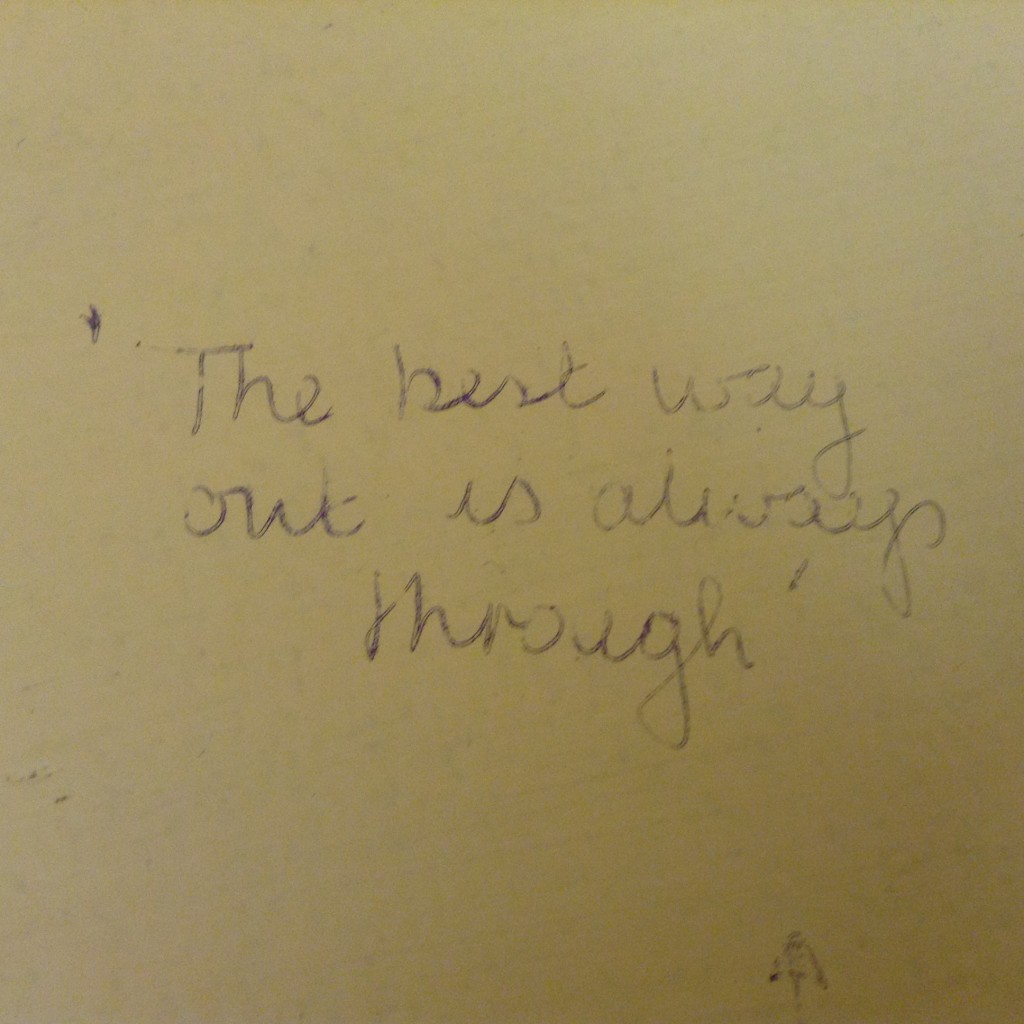 'The best way
out is always
through'